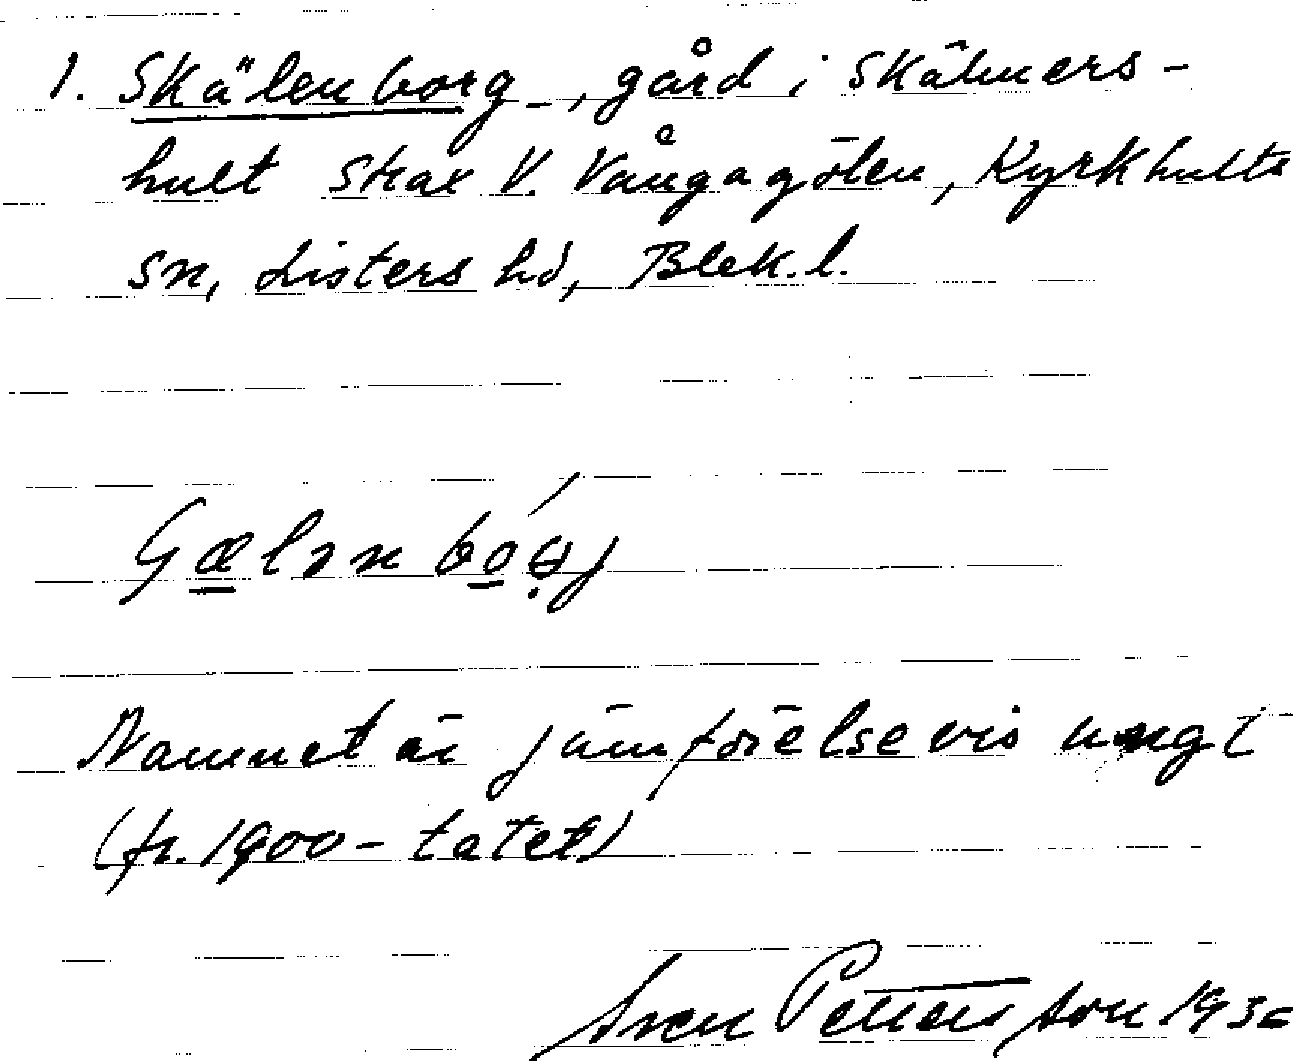 1. Skälenborg, gård i Skälmers-
hult strax V. Vångagölen, Kyrkhults
sn, Listers hd, Blek. l.
Namnet är jämförelsevis ungt
(fr. 1900-talet)
Sven Pettersson 19